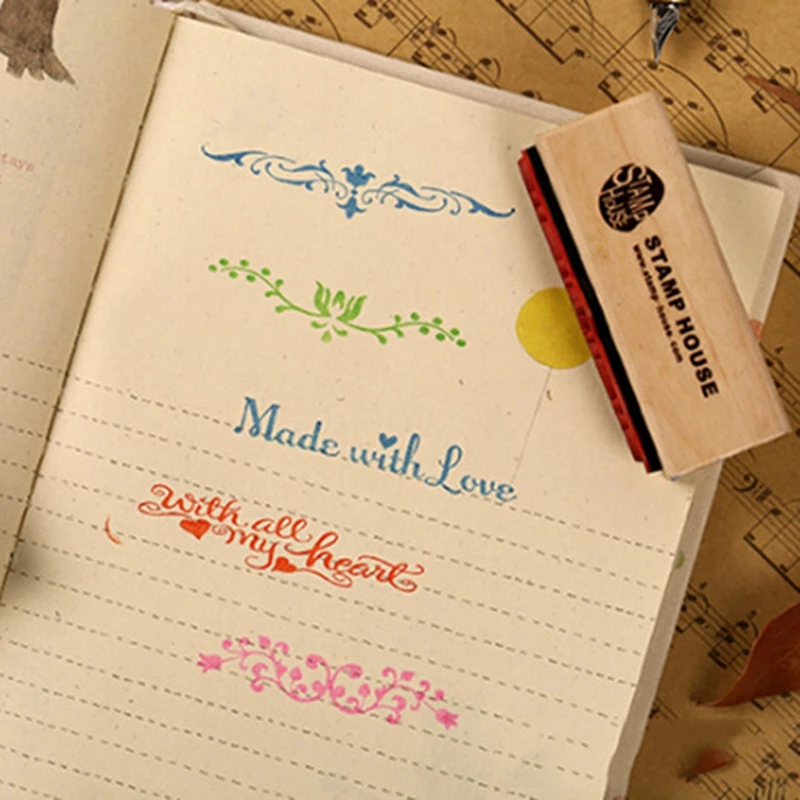 Made with Love
With all
my heart
STAMP
HOUSE
STAMP HOUSE
www.stamp-house.com